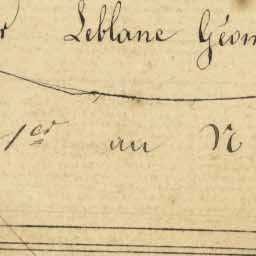 r Leblanc Géom
1er au N